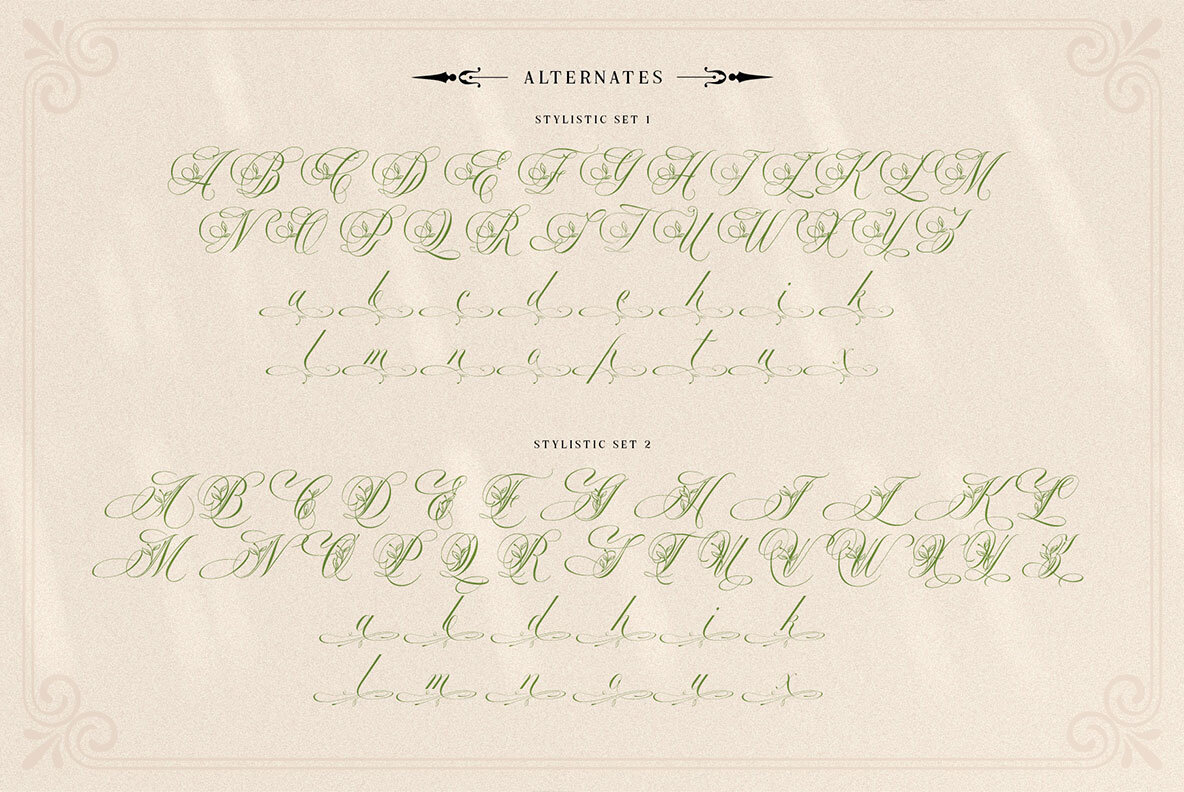 ALTERNATES
STYLISTIC SET 1
A B C D E F G H I J K L M
N O P Q R S T U W X Y Z
a b c d e h i k
l m n o p t u x
STYLISTIC SET 2
A B C D E F G H I J K L
M N O P Q R S T U V W X Y Z
a b d h i k
l m n o u x